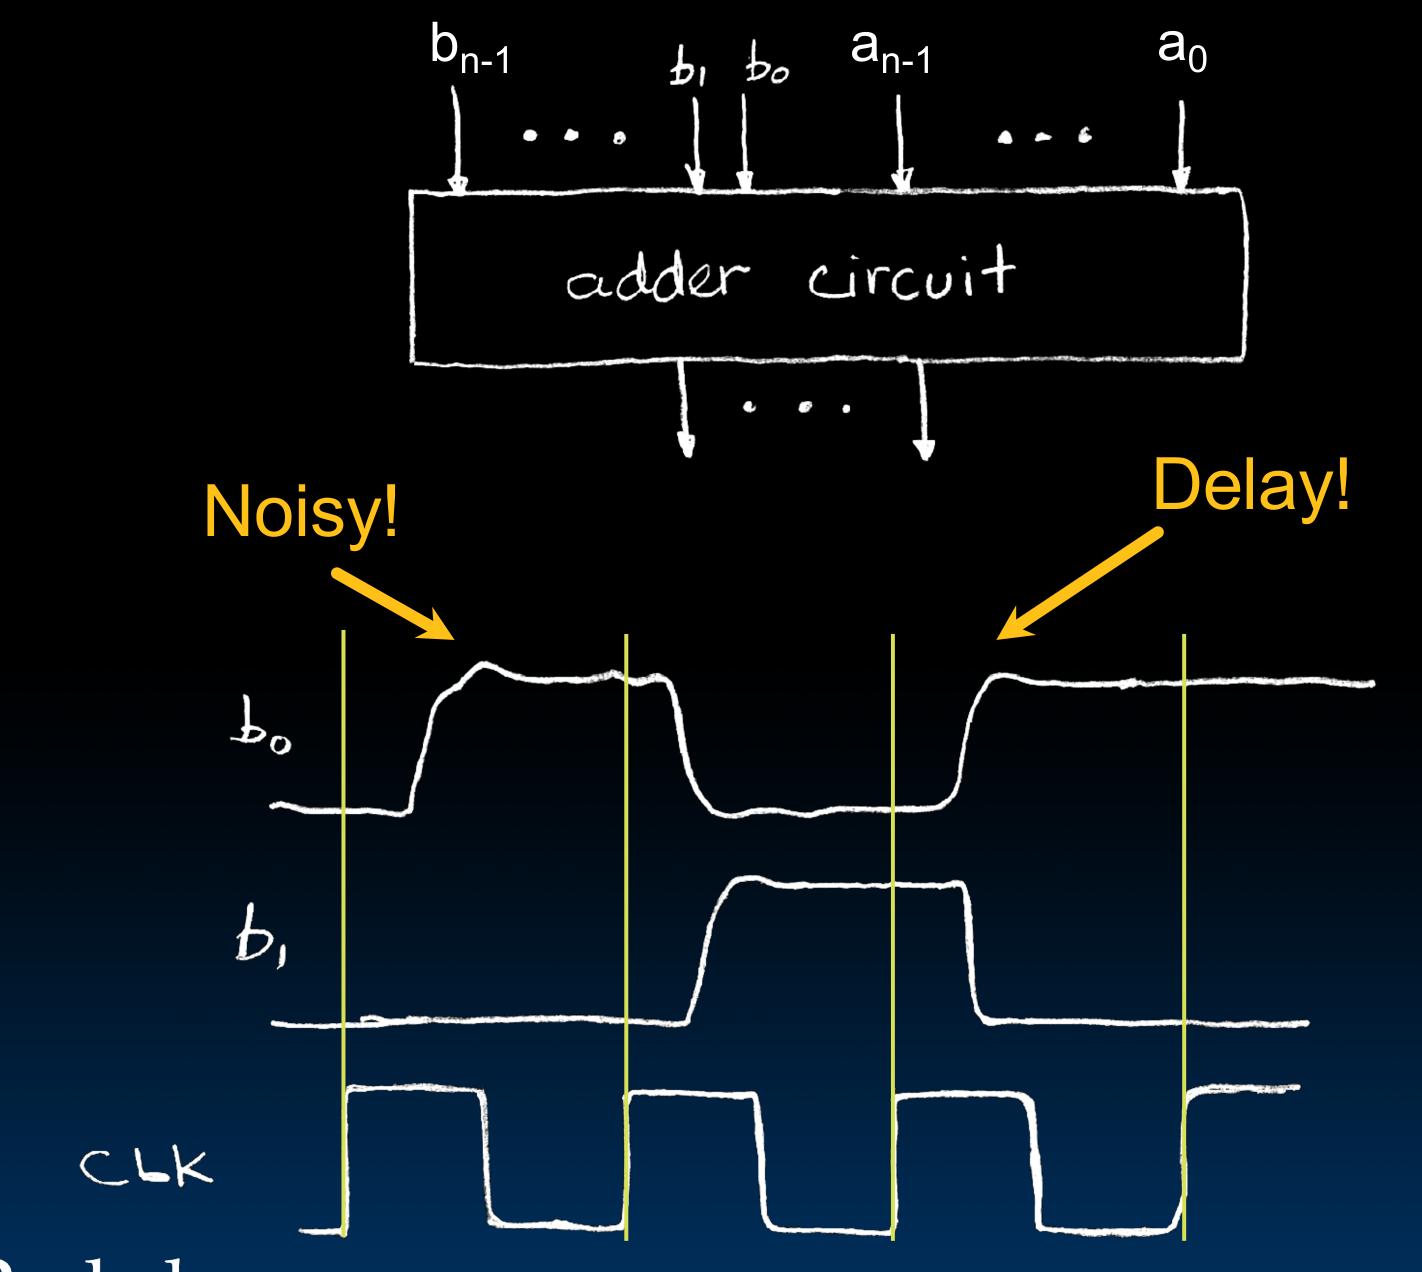 bn-1 b1 b0 an-1 a0
adder circuit
Noisy!
Delay!
b0
b1
CLK